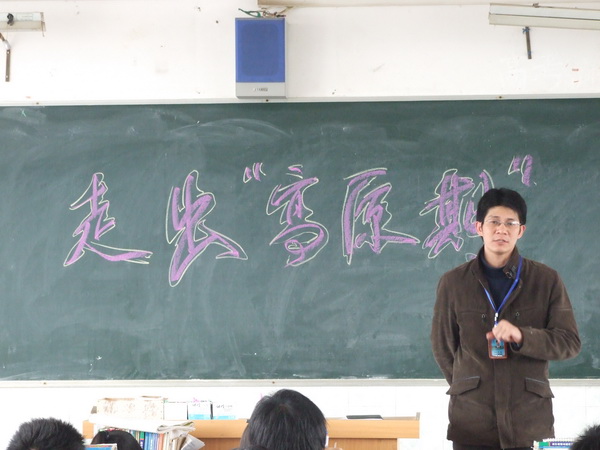 走出“高原期”